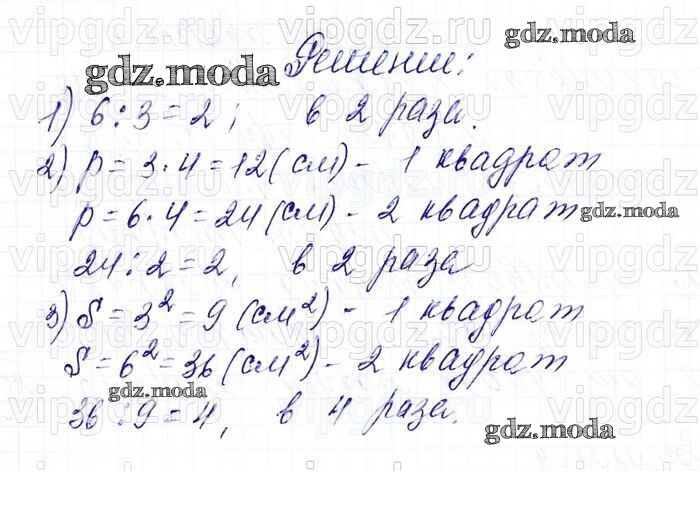 Решение:
1) 6 : 3 = 2; в 2 раза.
2) P = 3 · 4 = 12 (см) - 1 квадрат
P = 6 · 4 = 24 (см) - 2 квадрат
24 : 2 = 2, в 2 раза
3) S = 3² = 9 (см²) - 1 квадрат
S = 6² = 36 (см²) - 2 квадрат
36 : 9 = 4, в 4 раза.
gdz.moda
gdz.moda
gdz.moda
gdz.moda
gdz.moda
vipgdz.ru
vipgdz.ru
vipgdz.ru